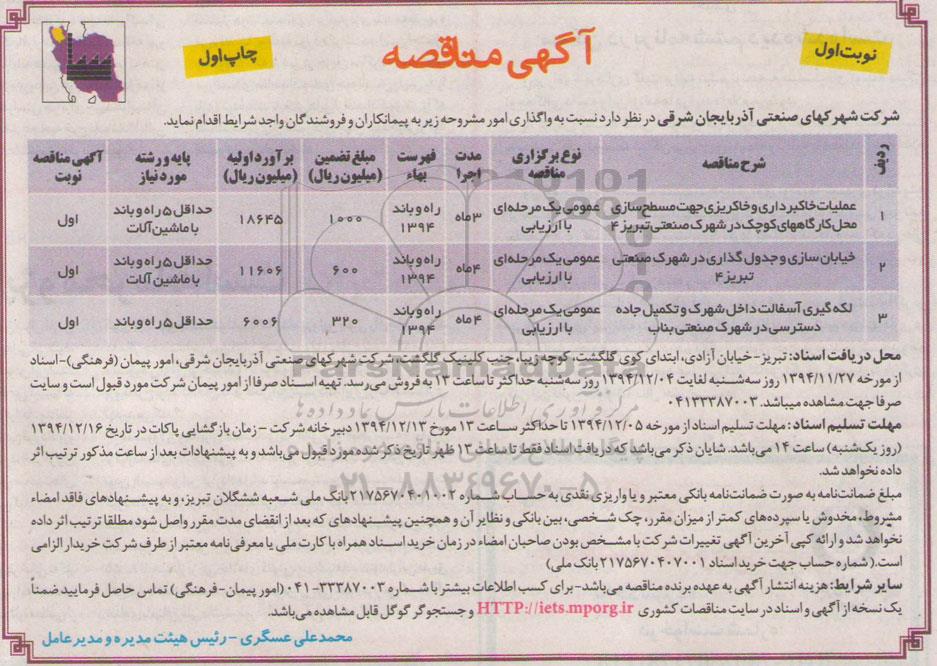 نوبت اول
آگهی مناقصه
چاپ اول
شرکت شهرکهای صنعتی آذربایجان شرقی در نظر دارد نسبت به واگذاری امور مشروحه زیر به پیمانکاران و فروشندگان واجد شرایط اقدام نماید.
ردیف شرح مناقصه نوع برگزاری مناقصه مدت اجرا فهرست بهاء مبلغ تضمین (میلیون ریال) برآورد اولیه (میلیون ریال) پایه و رشته مورد نیاز آگهی مناقصه نوبت
۱ عملیات خاکبرداری و خاکریزی جهت مسطح سازی محل کارگاههای کوچک در شهرک صنعتی تبریز ۴ عمومی یک مرحله‌ای با ارزیابی ۳ ماه راه و باند ۱۳۹۴ ۱۰۰۰ ۱۸۶۴۵ حداقل ۵ راه و باند با ماشین آلات اول
۲ خیابان سازی و جدول گذاری در شهرک صنعتی تبریز ۴ عمومی یک مرحله‌ای با ارزیابی ۴ ماه راه و باند ۱۳۹۴ ۶۰۰ ۱۱۶۰۶ حداقل ۵ راه و باند با ماشین آلات اول
۳ لکه گیری آسفالت داخل شهرک و تکمیل جاده دسترسی در شهرک صنعتی بناب عمومی یک مرحله‌ای با ارزیابی ۴ ماه راه و باند ۱۳۹۴ ۳۲۰ ۶۰۰۶ حداقل ۵ راه و باند اول
محل دریافت اسناد: تبریز- خیابان آزادی، ابتدای کوی گلگشت، کوچه زیبا، جنب کلینیک گلگشت، شرکت شهرکهای صنعتی آذربایجان شرقی، امور پیمان (فرهنگی)-اسناد
از مورخه ۱۳۹۴/۱۱/۲۷ روز سه‌شنبه لغایت ۱۳۹۴/۱۲/۰۴ روز سه‌شنبه حداکثر تا ساعت ۱۳ به فروش می‌رسد. تهیه اسناد صرفا از امور پیمان شرکت مورد قبول است و سایت
صرفا جهت مشاهده میباشد. ۰۴۱۳۳۳۸۷۰۰۳
مهلت تسلیم اسناد: مهلت تسلیم اسناد از مورخه ۱۳۹۴/۱۲/۰۵ تا حداکثر ساعت ۱۳ مورخ ۱۳۹۴/۱۲/۱۳ دبیرخانه شرکت – زمان بازگشایی پاکات در تاریخ ۱۳۹۴/۱۲/۱۶
(روز یک‌شنبه) ساعت ۱۴ می‌باشد. شایان ذکر می‌باشد که دریافت اسناد فقط تا ساعت ۱۳ ظهر تاریخ ذکر شده مورد قبول می‌باشد و به پیشنهادات بعد از ساعت مذکور ترتیب اثر
داده نخواهد شد.
مبلغ ضمانت‌نامه به صورت ضمانت‌نامه بانکی معتبر و یا واریزی نقدی به حساب شماره ۲۱۷۵۶۷۰۴۰۱۰۰۲ بانک ملی شعبه ششگلان تبریز، و به پیشنهادهای فاقد امضاء
مشروط، مخدوش یا سپرده‌های کمتر از میزان مقرر، چک شخصی، بین بانکی و نظایر آن و همچنین پیشنهادهای که بعد از انقضای مدت مقرر واصل شود مطلقا ترتیب اثر داده
نخواهد شد و ارائه کپی آخرین آگهی تغییرات شرکت با مشخص بودن صاحبان امضاء در زمان خرید اسناد همراه با کارت ملی یا معرفی‌نامه معتبر از طرف شرکت خریدار الزامی
است. (شماره حساب جهت خرید اسناد ۲۱۷۵۶۷۰۴۰۷۰۰۱ بانک ملی)
سایر شرایط: هزینه انتشار آگهی به عهده برنده مناقصه می‌باشد- برای کسب اطلاعات بیشتر با شماره ۳۳۳۸۷۰۰۳-۰۴۱ (امور پیمان-فرهنگی) تماس حاصل فرمایید ضمناً
یک نسخه از آگهی و اسناد در سایت مناقصات کشوری HTTP://iets.mporg.ir و جستجوگر گوگل قابل مشاهده می‌باشد.
محمدعلی عسگری – رئیس هیئت مدیره و مدیرعامل
ParsNamadData
مرکز فرآوری اطلاعات پارس نماد داده ها
۰۲۱-۸۸۳۴۹۶۷۰-۵